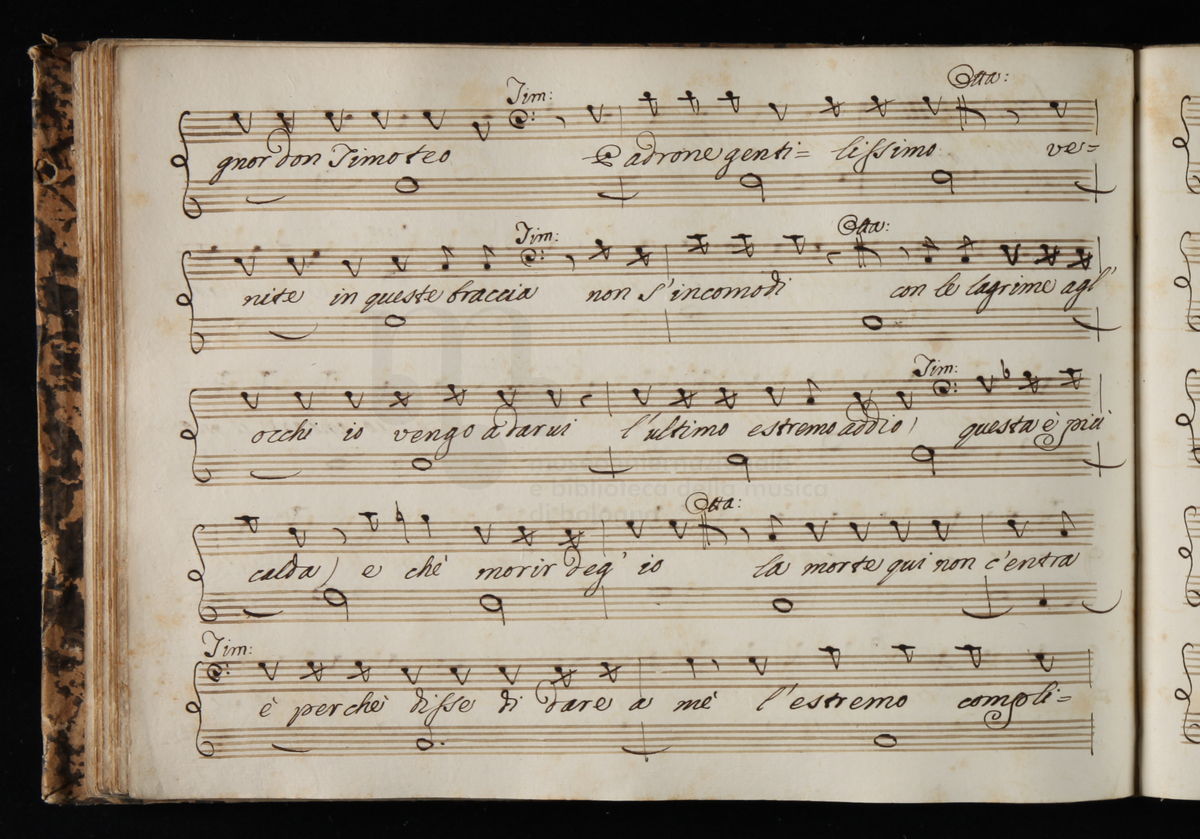 Tim: Otta:
gnor don Timoteo Padrone genti= lissimo ve=
Tim: Otta:
nite in queste braccia non s'incomodi con le lagrime agl'
Tim:
occhi io vengo a darvi l'ultimo estremo addio) questa è più
Otta:
calda) e chè morir deg' io la morte qui non c'entra
Tim:
è perchè disse di dare a mè l'estremo compli=
e biblioteca della musica
di bologna